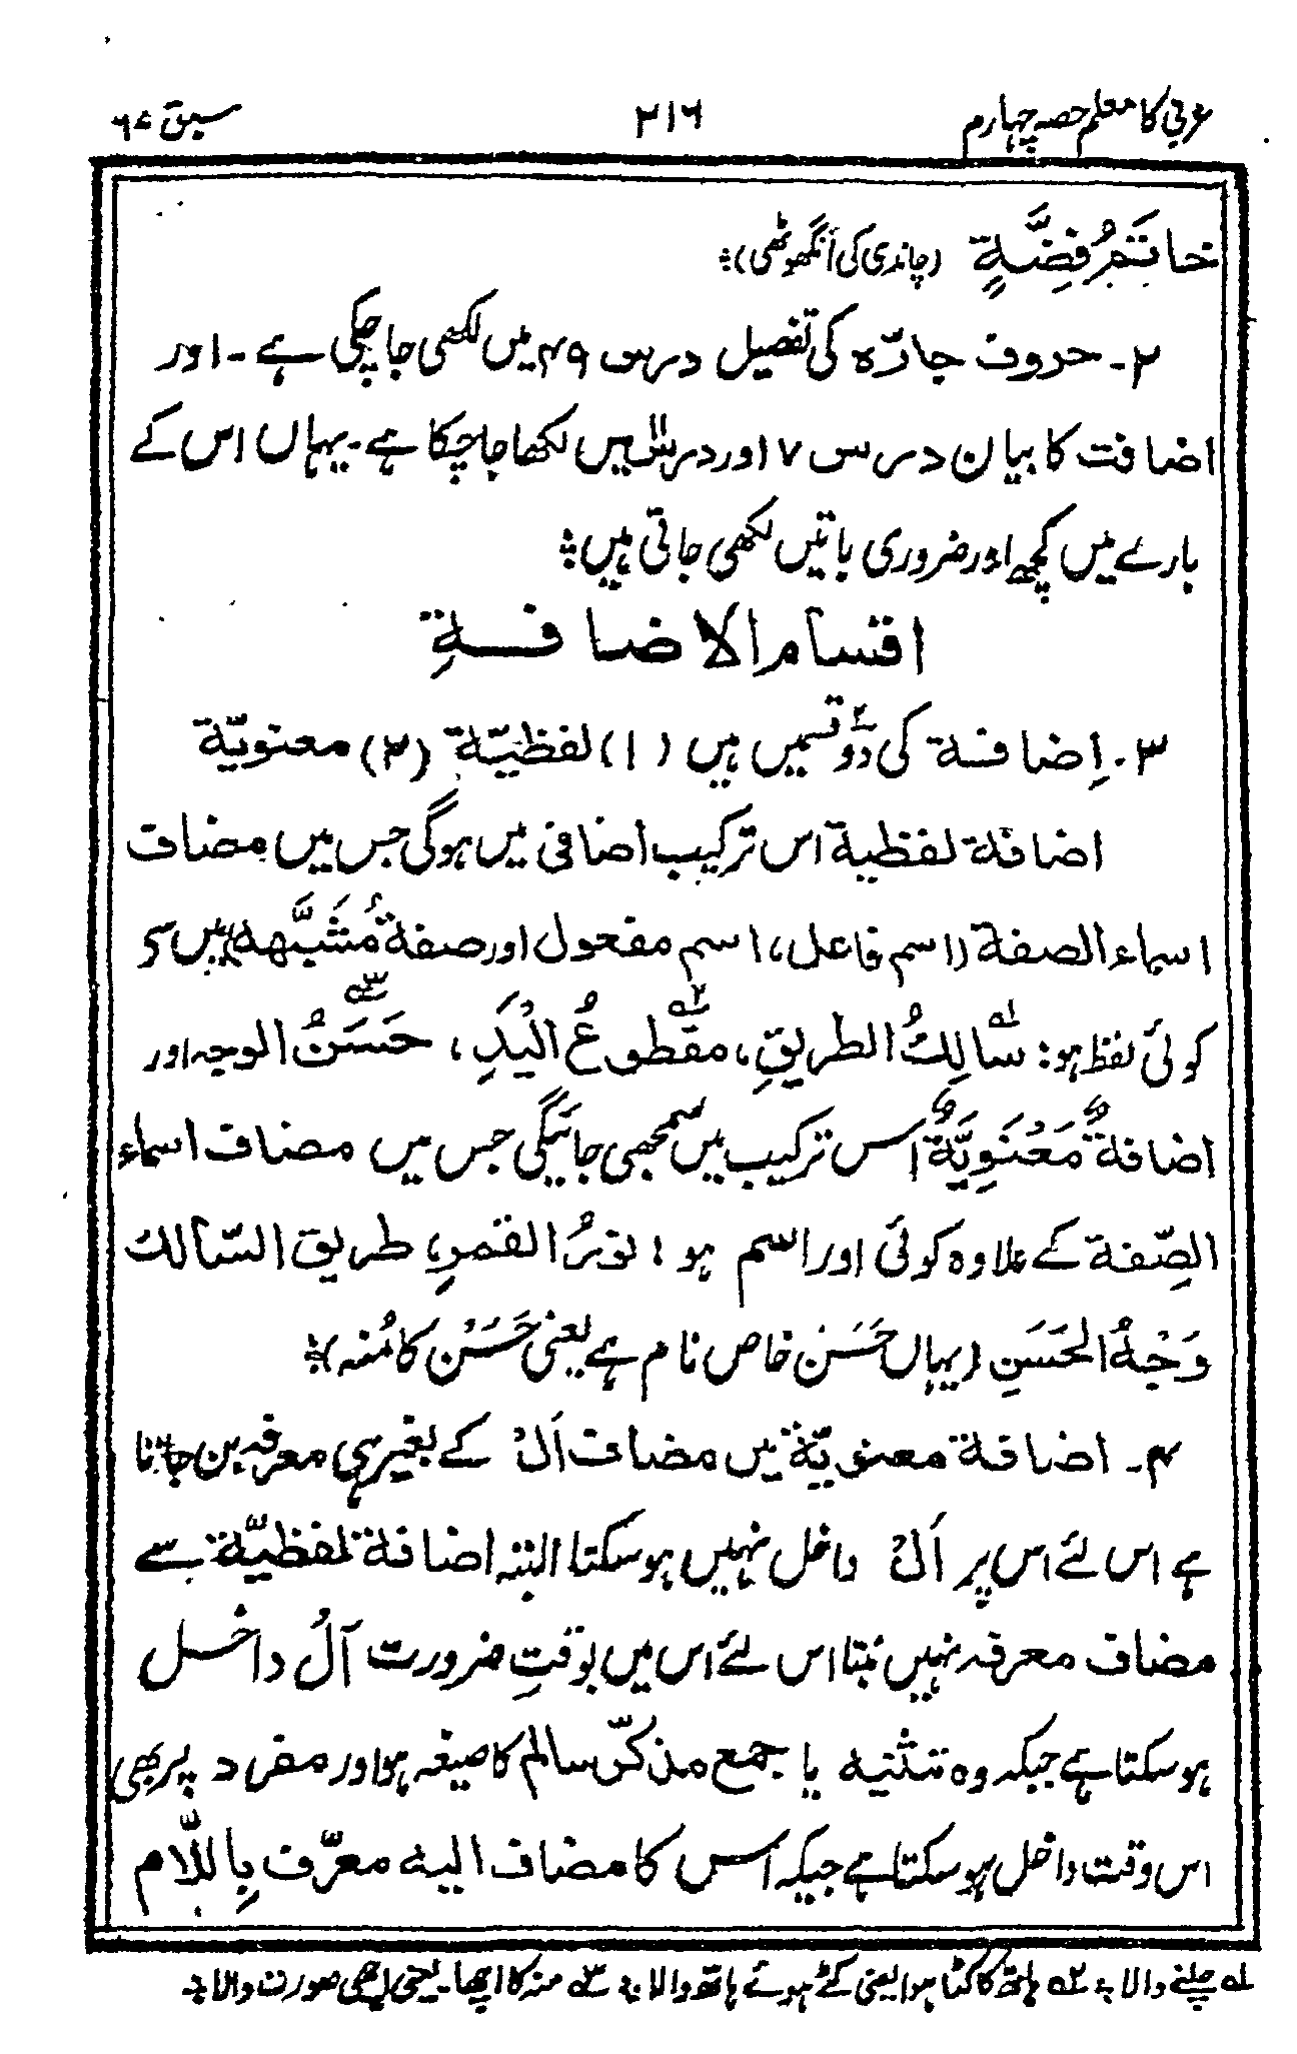 عربی کا معلم حصہ چہارم ۲۱۶ سبق ۶۷
خاتَمُ فِضَّةٍ (چاندی کی انگھوٹھی)؛
۲۔ حروف جارّہ کی تفصیل درس ۴۹ میں لکھی جا چکی ہے۔ اور
اضافت کا بیان درس ۷ اور درس ۱۱ میں لکھا جا چکا ہے۔ یہاں اس کے
بارے میں کچھ اور ضروری باتیں لکھی جاتی ہیں؛
اقسام الاضافةِ
۳۔ اِضافة کی دو قسمیں ہیں (۱) لفظیّة (۲) معنویّة
اضافة لفظیة اس ترکیب اضافی میں ہوگی جس میں مضاف
اسماء الصفة (اسم فاعل، اسم مفعول اور صفة مُشَبَّهه) میں سے
کوئی لفظ ہو: سالِكُ الطریقِ، مقطوعُ الیَدِ، حَسَنُ الوجہ اور
اضافةٌ مَعْنَوِیَّةٌ اس ترکیب میں سمجھی جائیگی جس میں مضاف اسماء
الصِّفة کے علاوہ کوئی اور اسم ہو: نورُ القمرِ، طریق السّالك
وَجْهُ الحَسَنِ (یہاں حَسَن خاص نام ہے یعنی حَسَن کا مُنہ)؛
۴۔ اضافة معنویّة میں مضاف اَلْ کے بغیر ہی معرفہ بن جاتا
ہے اس لئے اس پر اَلْ داخل نہیں ہو سکتا البتہ اضافة لفظیّة سے
مضاف معرفہ نہیں بنتا اس لئے اس میں بوقتِ ضرورت اَلْ داخل
ہو سکتا ہے جبکہ وہ تثنیہ یا جمع مذکّر سالم کا صیغہ ہو اور مفرد پر بھی
اس وقت داخل ہو سکتا ہے جبکہ اس کا مضاف الیہ معرّف بِاللّام
لہ چلنے والا؛ ۲ہ ہاتھ کا کٹا ہوا یعنی کٹے ہوئے ہاتھ والا؛ ۳ہ منہ کا اچھا۔ یعنی اچھی صورت والا؛